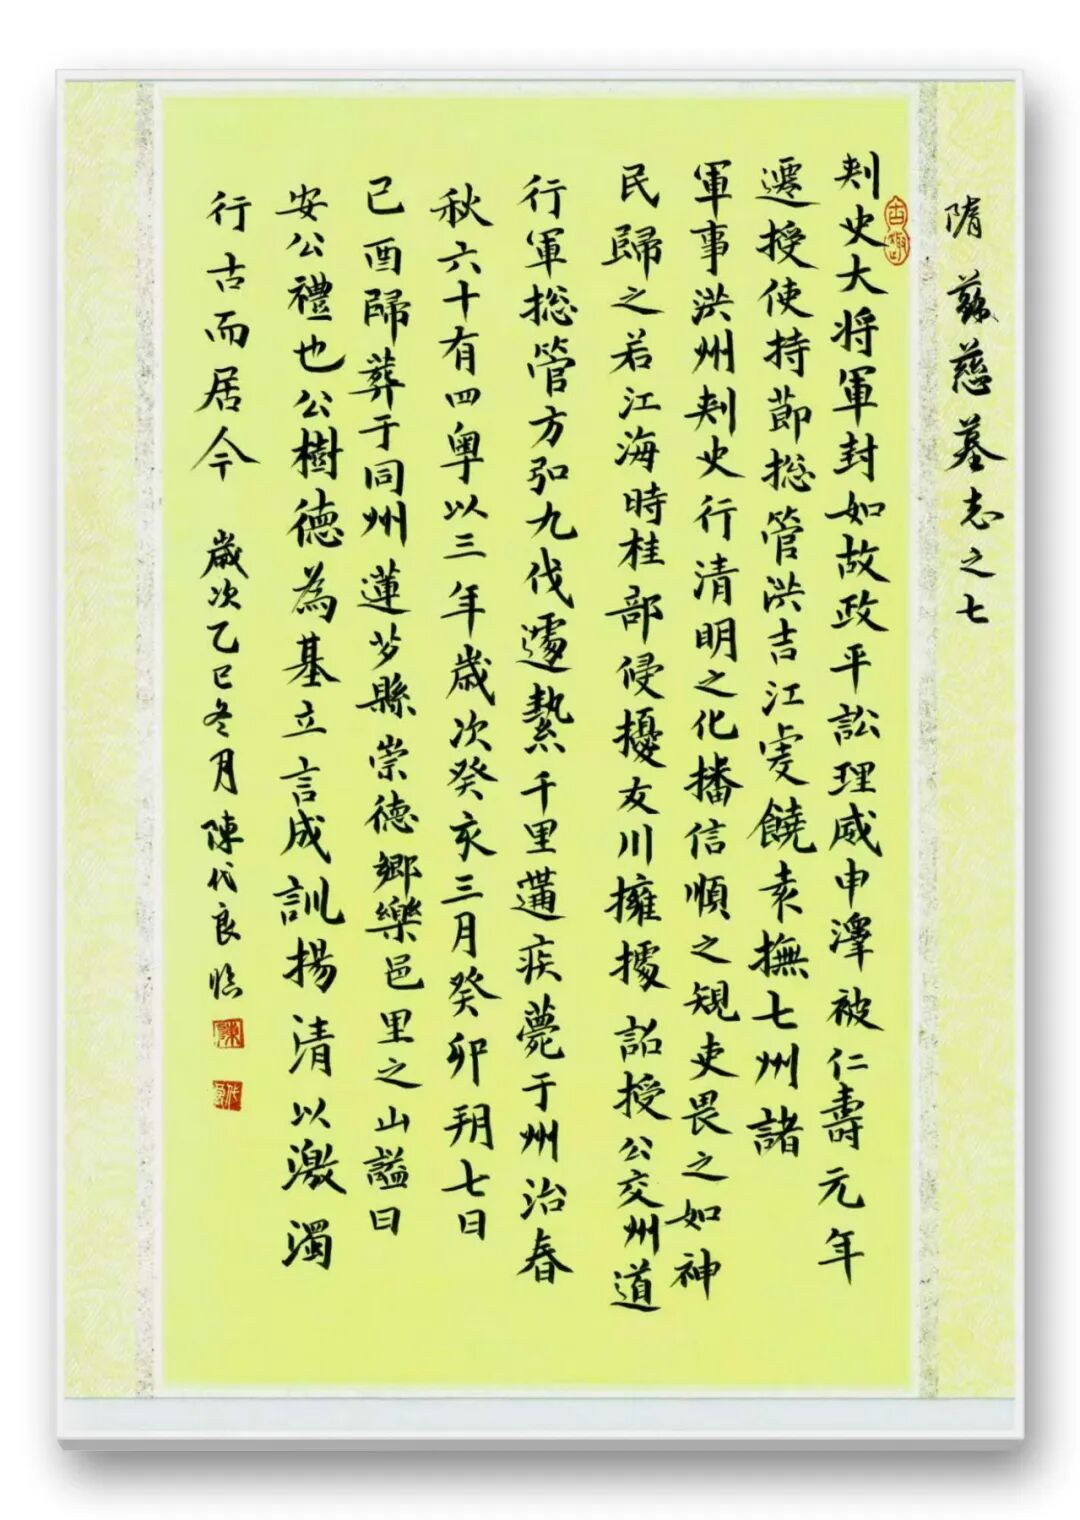 隋 蘇慈墓志之七
古趣
刺史大将軍封如故政平訟理威申澤被仁壽元年
遷授使持節揔管洪吉江虔饒袁撫七州諸
軍事洪州刺史行清明之化播信順之規吏畏之如神
民歸之若江海時桂部侵擾交川擁據 詔授公交州道
行軍揔管方弘九伐遽縶千里遘疾薨于州治春
秋六十有四粤以三年歲次癸亥三月癸卯朔七日
己酉歸葬于同州蓮芍縣崇德鄉樂邑里之山謚曰
安公禮也公樹德為基立言成訓揚清以激濁
行古而居今 歲次乙巳冬月陳代良臨